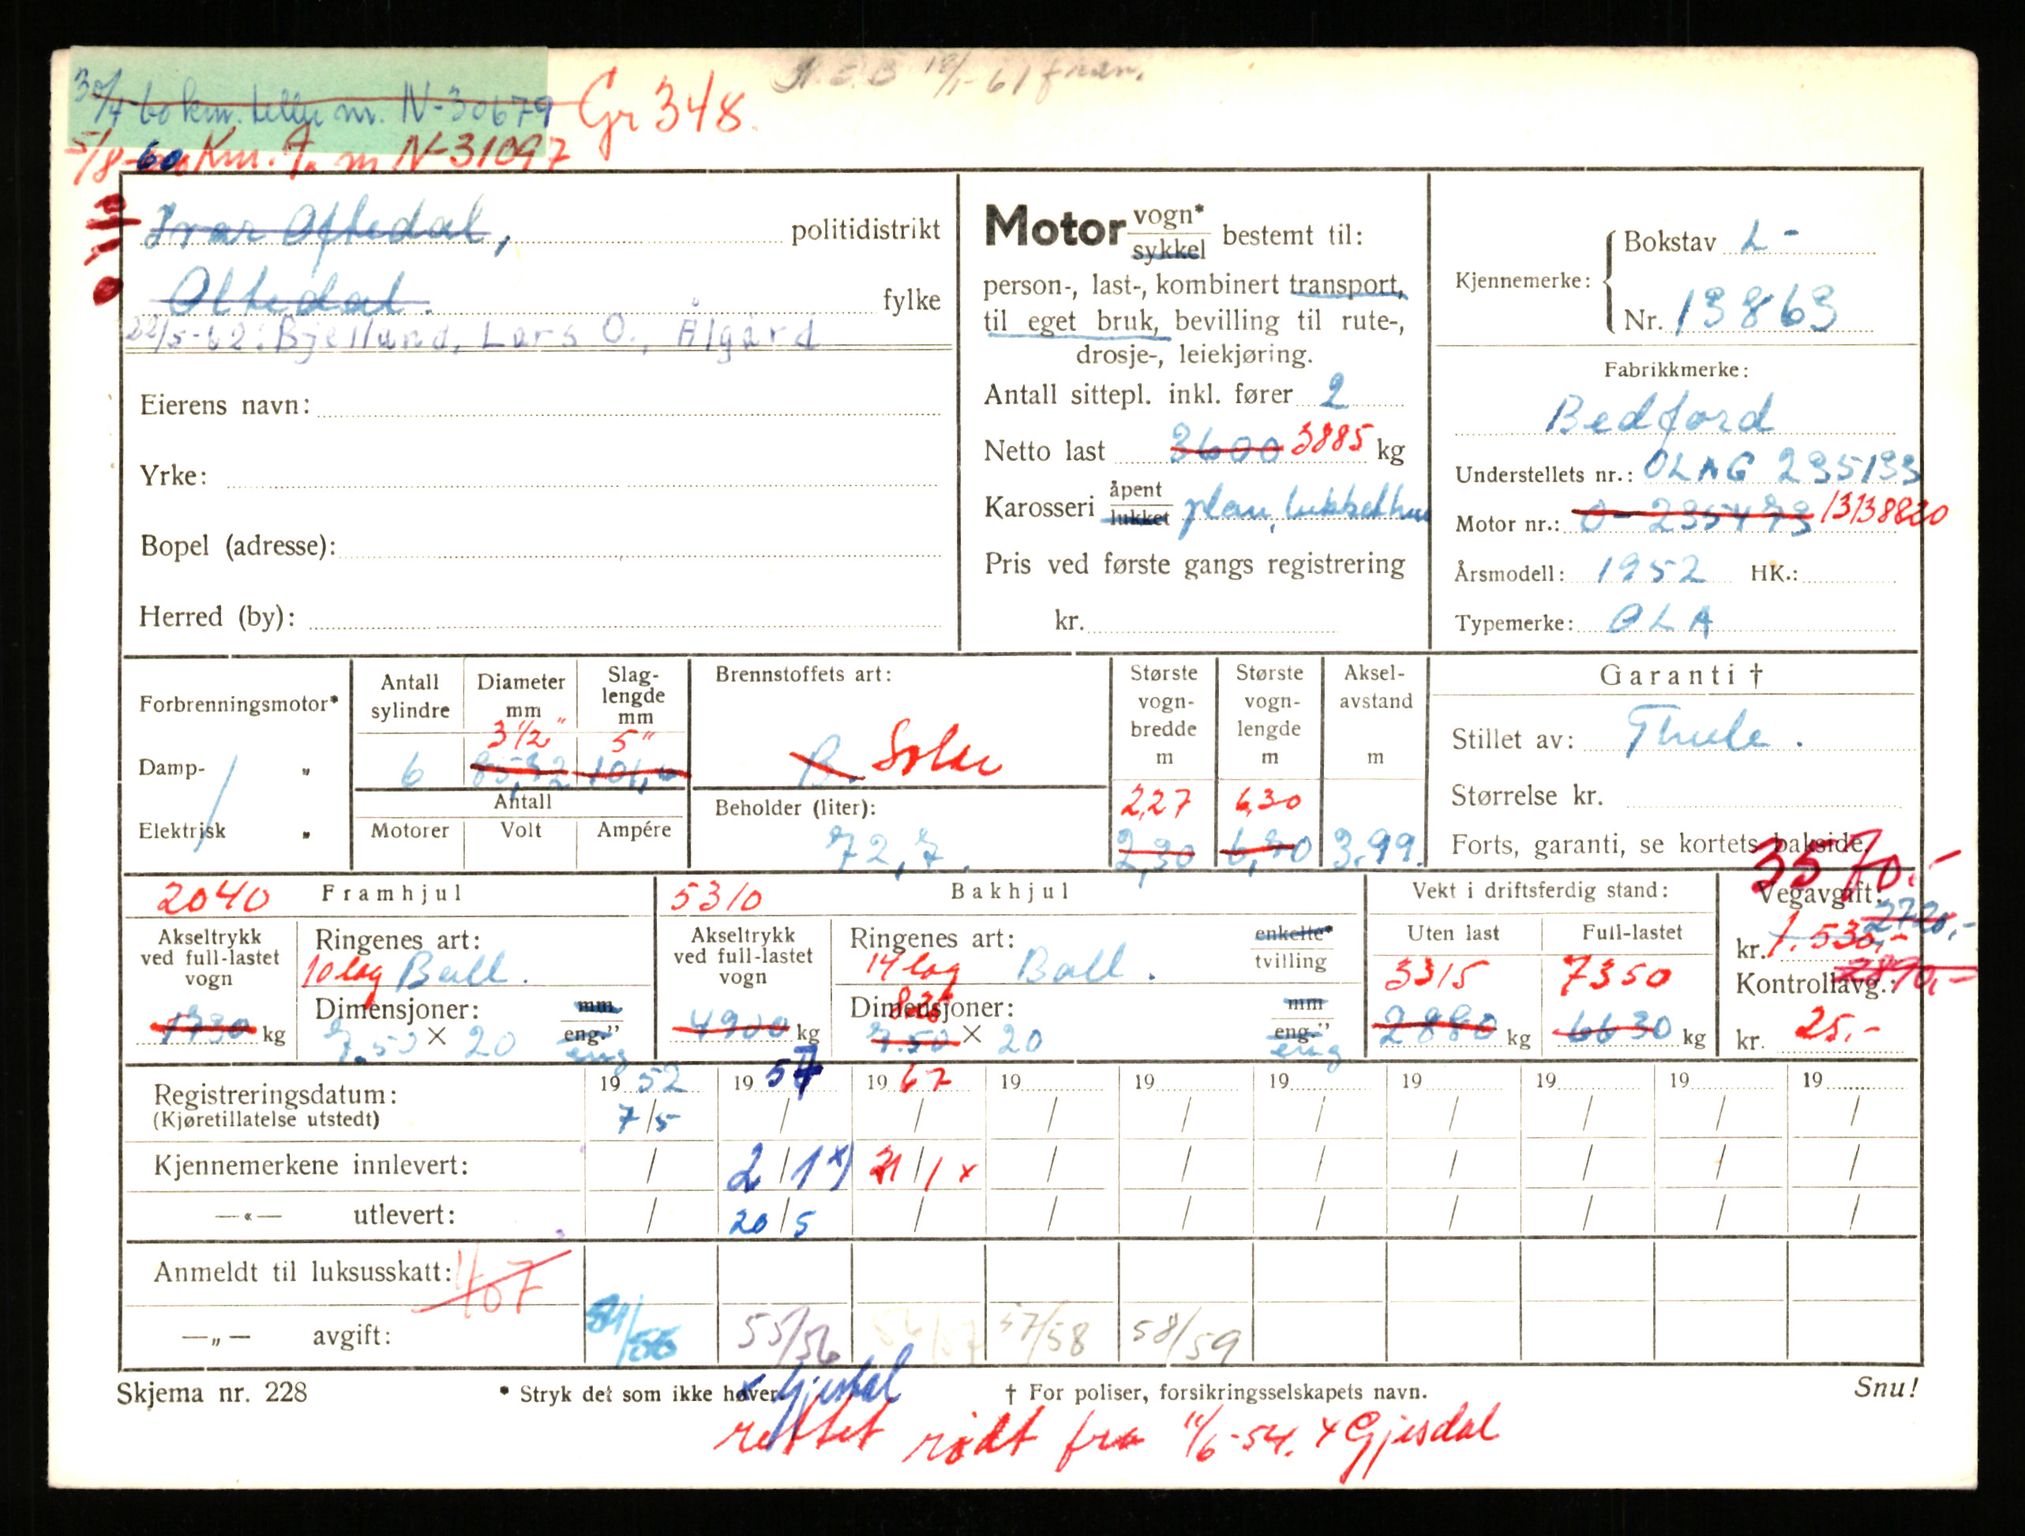 30/4-60 km. teller nr. N-30679 Gr 348.
5/8-60 Km. T. nr N-31097
Ivar Oftedal, politidistrikt
Oltedal. fylke
22/5-62: Bjelland, Lars O., Ålgård
Eierens navn:
Yrke:
Bopel (adresse):
Herred (by):
Motor vogn* sykkel bestemt til:
person-, last-, kombinert transport,
til eget bruk, bevilling til rute-,
drosje-, leiekjøring.
Antall sittepl. inkl. fører 2
Netto last 3600 3885 kg
Karosseri åpent lukket plan, lukket hus
Pris ved første gangs registrering
kr.
Kjennemerke: Bokstav L-
Nr. 13863
Fabrikkmerke:
Bedford
Understellets nr.: OLAG 235133
Motor nr.: 0-235473 13138830
Årsmodell: 1952 HK.:
Typemerke: OLA
Forbrenningsmotor*
Damp- „
Elektrisk „
Antall sylindre
6
Diameter mm
3 1/2"
85,72
Slag-lengde mm
5"
101,6
Antall
Motorer Volt Ampére
Brennstoffets art:
B. Solar
Beholder (liter):
72,7.
Største vogn-bredde m
2,27
2,30
Største vogn-lengde m
6,30
6,70
Aksel-avstand m
3.99.
Garanti †
Stillet av: Thule.
Størrelse kr.
Forts, garanti, se kortets bakside.
2040 Framhjul
Akseltrykk ved full-lastet vogn
1730 kg
Ringenes art:
10 lag Ball.
Dimensjoner: mm
7.50 × 20 eng." eng
5310 Bakhjul
Akseltrykk ved full-lastet vogn
4900 kg
Ringenes art: enkelte*
14 lag Ball. tvilling
Dimensjoner: mm
8.25
7.50 × 20 eng." eng
Vekt i driftsferdig stand:
Uten last Full-lastet
3315 7350
2880 kg 6630 kg
3570.-
Vegavgift:
2720,-
kr. 1.530,-
2890,-
Kontrollavg.:
kr. 25.-
Registreringsdatum: 19 52 19 57 19 67 19 19 19 19 19 19 19
(Kjøretillatelse utstedt) 7/5 / / / / / / / / /
Kjennemerkene innlevert: / 2/1 x) 21/1 x / / / / / / /
—«— utlevert: / 20/5 / / / / / / / /
Anmeldt til luksusskatt: 407
—„— avgift: 54/55 55/56 56/57 57/58 58/59
Skjema nr. 228 * Stryk det som ikke høver. x Gjesdal † For poliser, forsikringsselskapets navn. Snu!
rettet rødt fra 11/6-54. x Gjesdal